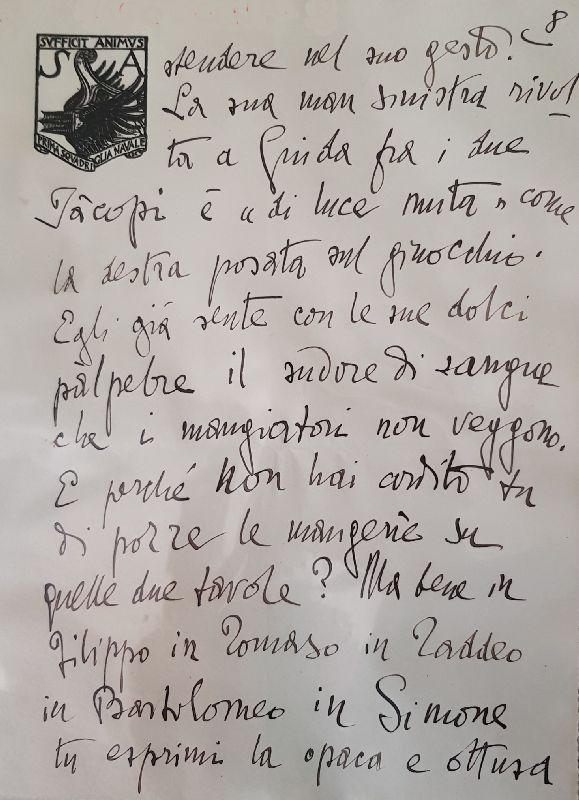 8
SVFFICIT ANIMVS
S A
PRIMA SQVADRIGLIA NAVALE
stendere nel suo gesto?
La sua man sinistra rivol
ta a Guida fra i due
Jàcopi è « di luce muta » come
la destra posata sul ginocchio.
Egli già sente con le sue dolci
pàlpebre il sudore di sangue
che i mangiatori non veggono.
E perché non hai ardito tu
di porre le mangerie su
quelle due tavole? Ma bene in
Filippo in Tomaso in Taddeo
in Bartolomeo in Simone
tu esprimi la opaca e ottusa